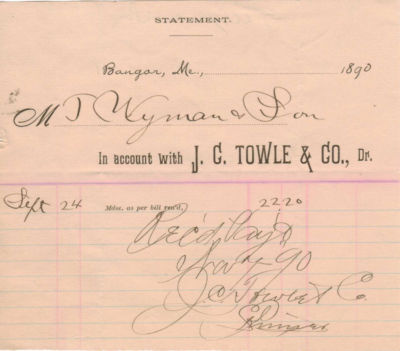 STATEMENT.
Bangor, Me., 1890
M T Wyman & Son
In account with J. C. TOWLE & CO., Dr.
Sept 24 Mdse. as per bill ren'd, 22 20
Rec'd Pay't
90
J. C. Towle & Co.